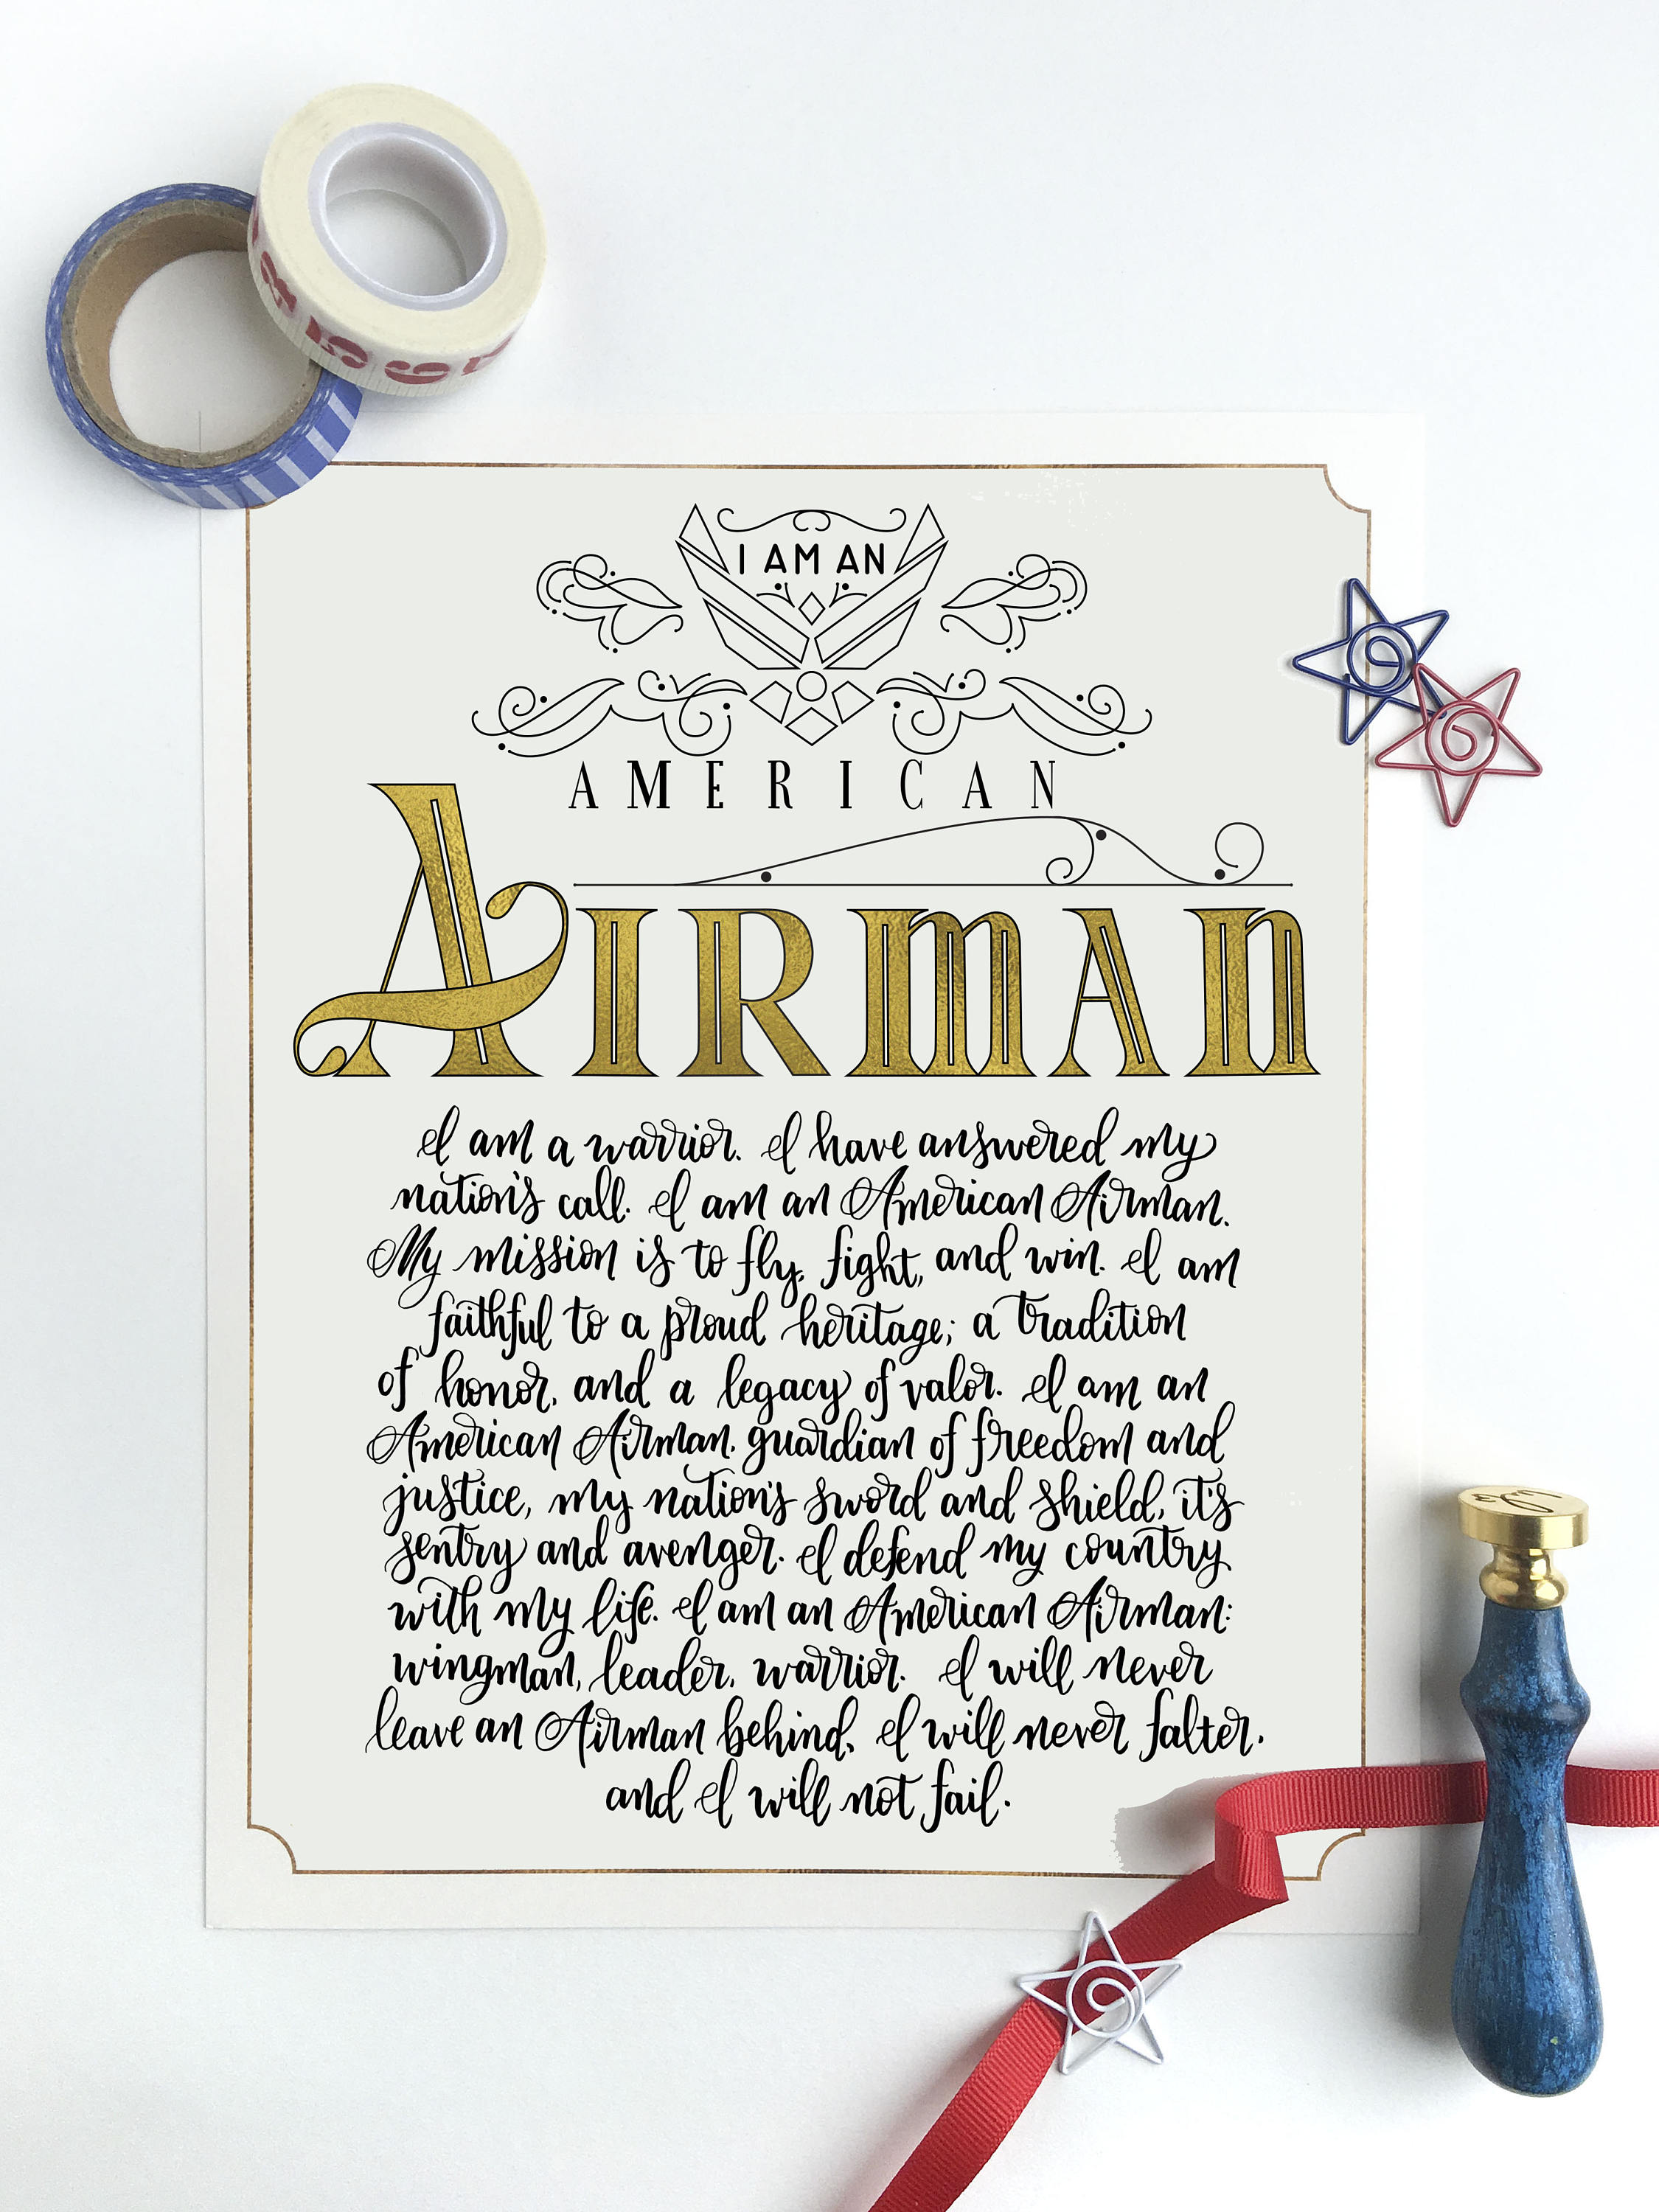 I AM AN
AMERICAN
AIRMAN
I am a warrior. I have answered my
nation's call. I am an American Airman.
My mission is to fly, fight, and win. I am
faithful to a proud heritage; a tradition
of honor, and a legacy of valor. I am an
American Airman. guardian of freedom and
justice, my nation's sword and shield, it's
sentry and avenger. I defend my country
with my life. I am an American Airman:
wingman, leader, warrior. I will never
leave an Airman behind, I will never falter.
and I will not fail.